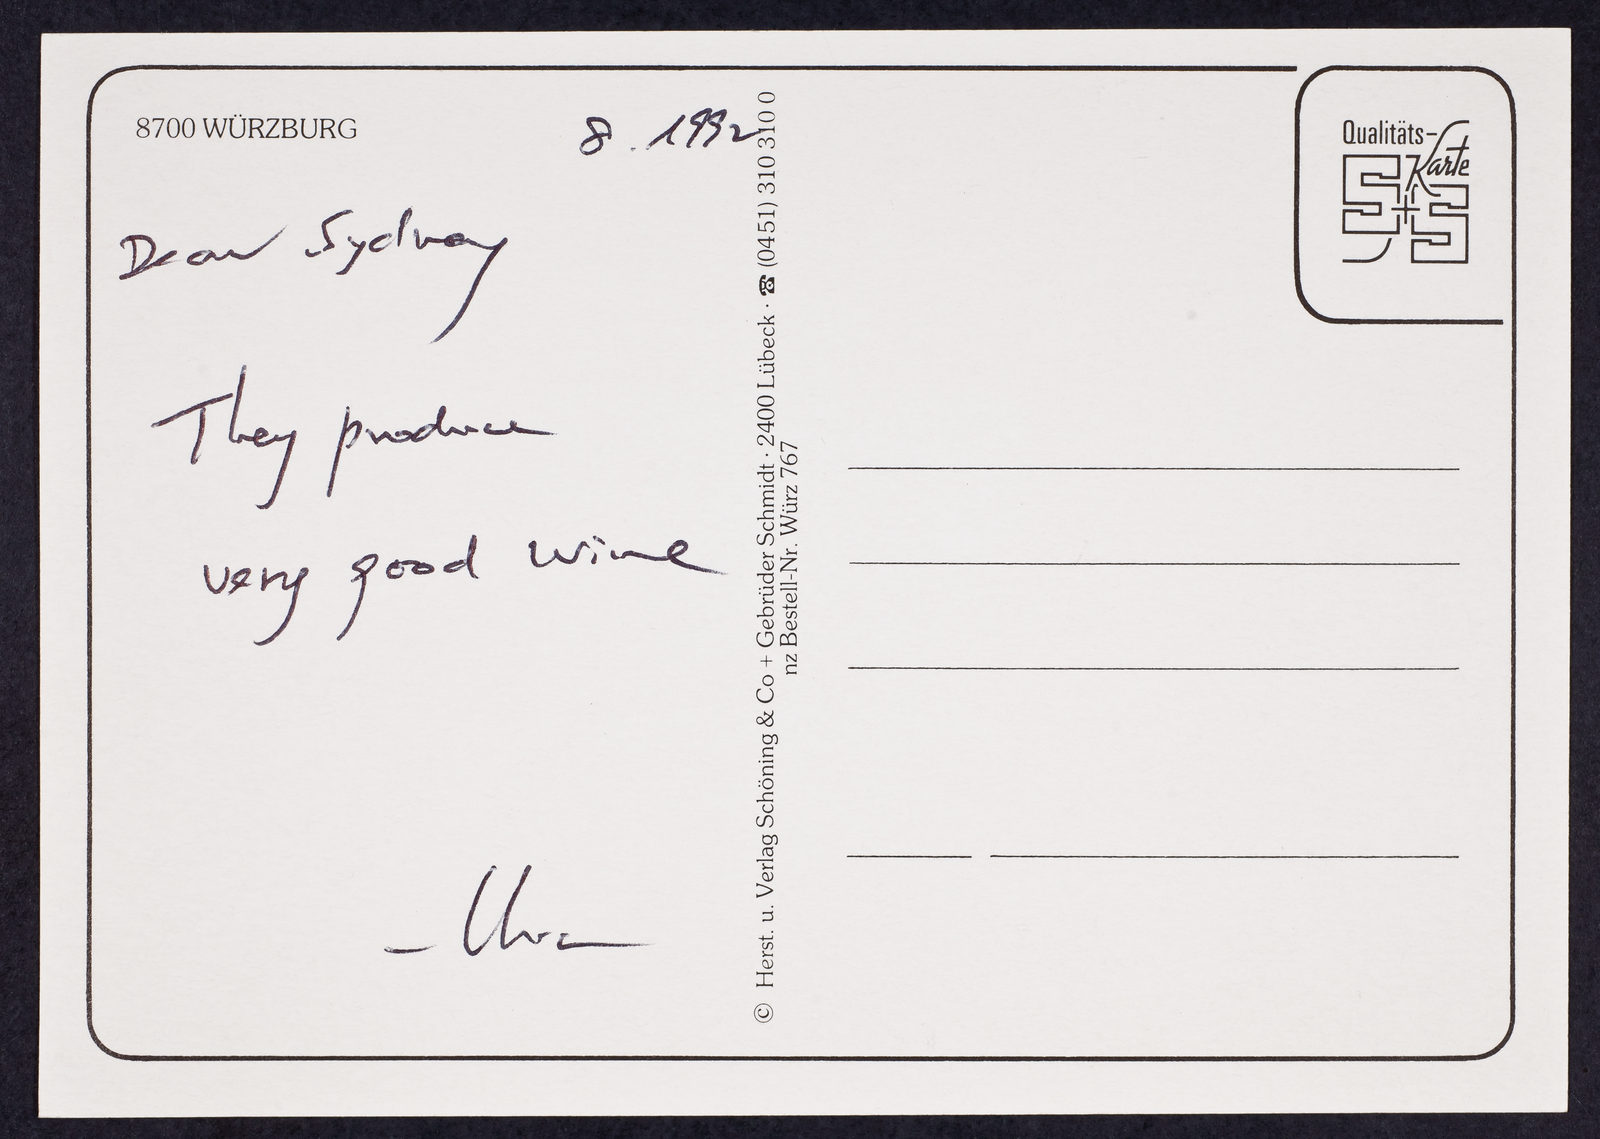 8700 WÜRZBURG
8. 1992
Dear Sydney
They produce
very good wine
© Herst. u. Verlag Schöning & Co + Gebrüder Schmidt · 2400 Lübeck · ☎ (0451) 310 310 0
nz Bestell-Nr. Würz 767
Qualitäts-
Karte
S+S